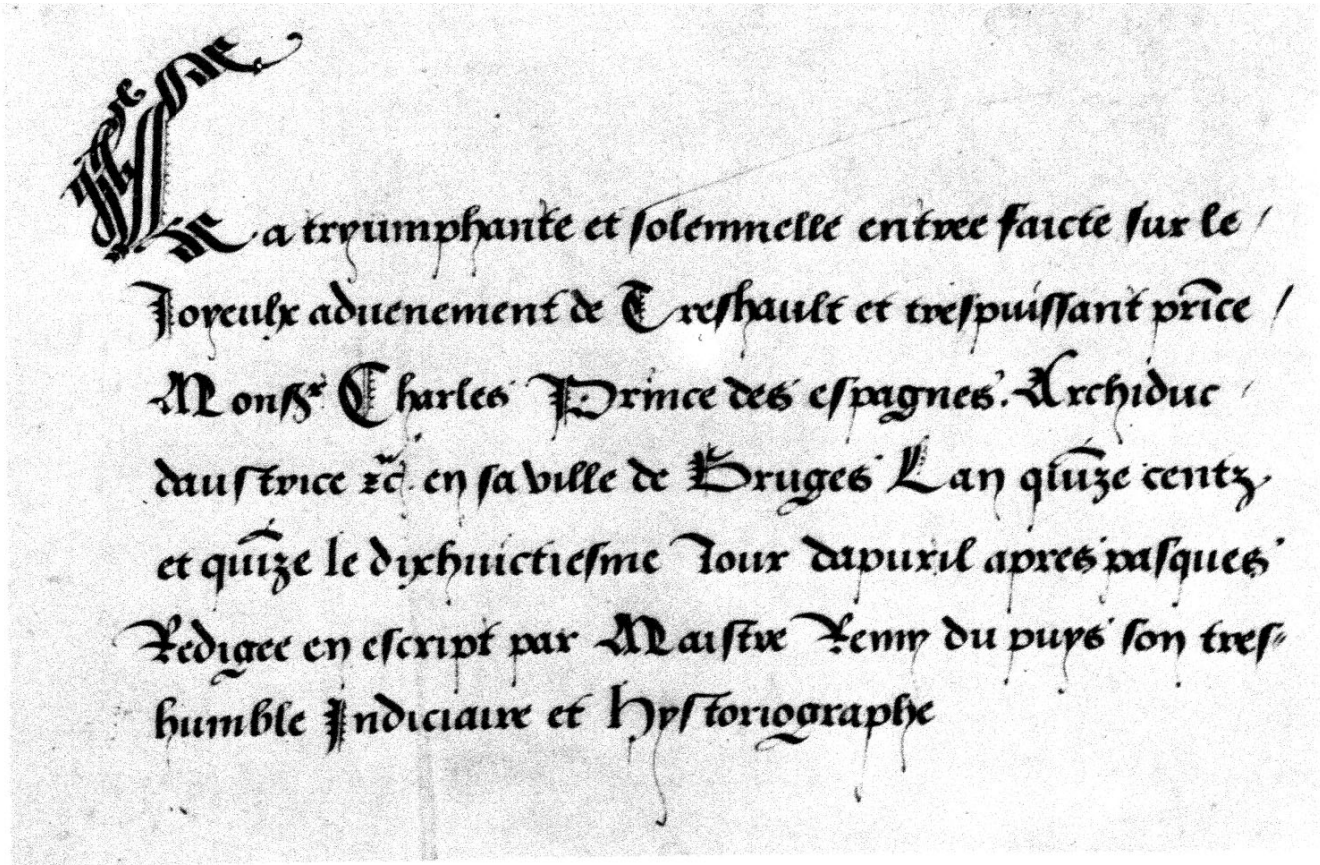 La tryumphante et solemnelle entree faicte sur le /
Joyeulx aduenement de Treshault et trespuissant prīce /
Monsr Charles Prince des espagnes. Archiduc /
daustrice ⁊c̄. en sa ville de Bruges Lan quīze centz.
et quīze le dixhuictiesme Jour dapuril apres pasques
Redigee en escript par Maistre Remy du puys son tres-
humble Indiciaire et Hystoriographe